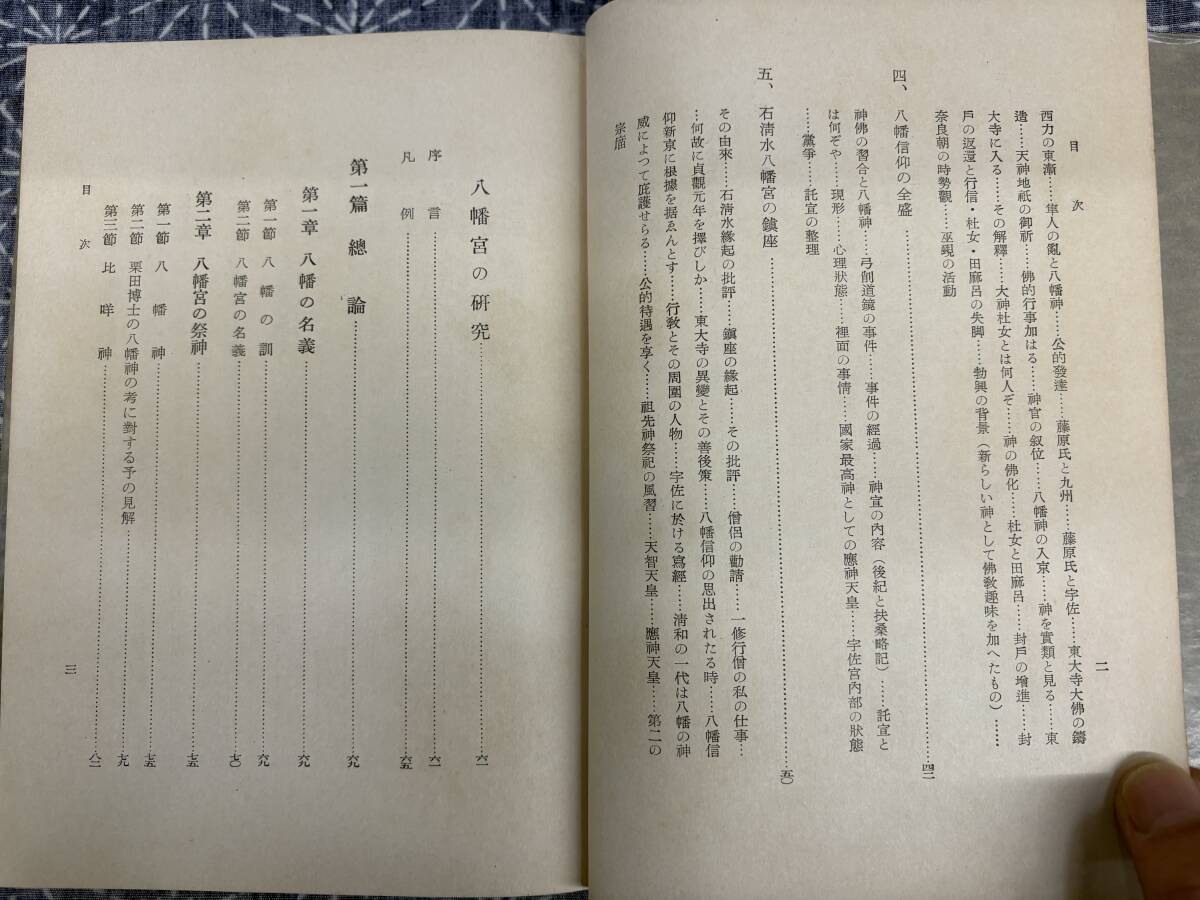 目次
二
西力の東漸……隼人の亂と八幡神……公的發達……藤原氏と九州……藤原氏と宇佐……東大寺大佛の鑄
造……天神地祇の御祈……佛的行事加はる……神官の叙位……八幡神の入京……神を實類と見る……東
大寺に入る……その解釋……大神杜女とは何人ぞ……神の佛化……杜女と田麻呂……封戶の增進……封
戶の返還と行信・杜女・田麻呂の失脚……勃興の背景（新らしい神として佛敎趣味を加へたもの）……
奈良朝の時勢觀……巫覡の活動
四、八幡信仰の全盛……四二
神佛の習合と八幡神……弓削道鏡の事件……事件の經過……神宣の內容（後紀と扶桑略記）……託宣と
は何ぞや……現形……心理狀態……裡面の事情……國家最高神としての應神天皇……宇佐宮內部の狀態
……黨爭……託宣の整理
五、石淸水八幡宮の鎭座……五〇
その由來……石淸水緣起の批評……鎭座の緣起……その批評……僧侶の勸請……一修行僧の私の仕事…
…何故に貞觀元年を擇びしか……東大寺の異變とその善後策……八幡信仰の思出されたる時……八幡信
仰新京に根據を据ゑんとす……行敎とその周圍の人物……宇佐に於ける寫經……淸和の一代は八幡の神
威によつて庇護せらる……公的待遇を享く……祖先神祭祀の風習……天智天皇……應神天皇……第二の
宗廟
八幡宮の硏究……六一
序言……六一
凡例……六五
第一篇 總論……六九
第一章 八幡の名義……六九
第一節 八幡の訓……六九
第二節 八幡宮の名義……七〇
第二章 八幡宮の祭神……七五
第一節 八幡神……七五
第二節 栗田博士の八幡神の考に對する予の見解……七九
第三節 比咩神……八二
目次
三